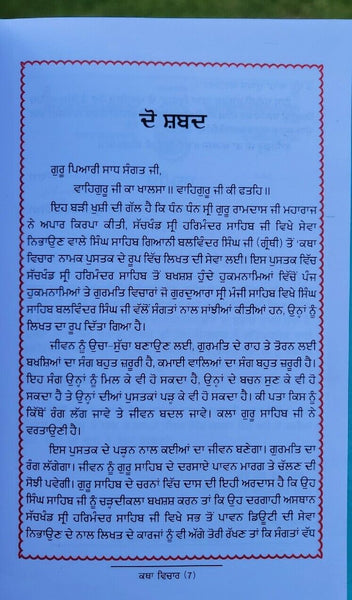 ਦੋ ਸ਼ਬਦ
ਗੁਰੂ ਪਿਆਰੀ ਸਾਧ ਸੰਗਤ ਜੀ,
ਵਾਹਿਗੁਰੂ ਜੀ ਕਾ ਖਾਲਸਾ॥ ਵਾਹਿਗੁਰੂ ਜੀ ਕੀ ਫਤਹਿ॥
ਇਹ ਬੜੀ ਖੁਸ਼ੀ ਦੀ ਗੱਲ ਹੈ ਕਿ ਧੰਨ ਧੰਨ ਸ੍ਰੀ ਗੁਰੂ ਰਾਮਦਾਸ ਜੀ ਮਹਾਰਾਜ
ਨੇ ਅਪਾਰ ਕਿਰਪਾ ਕੀਤੀ, ਸੱਚਖੰਡ ਸ੍ਰੀ ਹਰਿਮੰਦਰ ਸਾਹਿਬ ਜੀ ਵਿਖੇ ਸੇਵਾ
ਨਿਭਾਉਣ ਵਾਲੇ ਸਿੰਘ ਸਾਹਿਬ ਗਿਆਨੀ ਬਲਵਿੰਦਰ ਸਿੰਘ ਜੀ (ਗ੍ਰੰਥੀ) ਤੋਂ 'ਕਥਾ
ਵਿਚਾਰ' ਨਾਮਕ ਪੁਸਤਕ ਦੇ ਰੂਪ ਵਿੱਚ ਲਿਖਤ ਦੀ ਸੇਵਾ ਲਈ। ਇਸ ਪੁਸਤਕ ਵਿੱਚ
ਸੱਚਖੰਡ ਸ੍ਰੀ ਹਰਿਮੰਦਰ ਸਾਹਿਬ ਤੋਂ ਬਖਸ਼ਸ਼ ਹੁੰਦੇ ਹੁਕਮਨਾਮਿਆਂ ਵਿੱਚੋਂ ਪੰਜ
ਹੁਕਮਨਾਮਿਆਂ ਤੇ ਗੁਰਮਤਿ ਵਿਚਾਰਾਂ ਜੋ ਗੁਰਦੁਆਰਾ ਸ੍ਰੀ ਮੰਜੀ ਸਾਹਿਬ ਵਿਖੇ ਸਿੰਘ
ਸਾਹਿਬ ਬਲਵਿੰਦਰ ਸਿੰਘ ਜੀ ਵੱਲੋਂ ਸੰਗਤਾਂ ਨਾਲ ਸਾਂਝੀਆਂ ਕੀਤੀਆਂ ਹਨ, ਉਨਾਂ ਨੂੰ
ਲਿਖਤ ਦਾ ਰੂਪ ਦਿੱਤਾ ਗਿਆ ਹੈ।
ਜੀਵਨ ਨੂੰ ਉਚਾ-ਸੁੱਚਾ ਬਣਾਉਣ ਲਈ, ਗੁਰਮਤਿ ਦੇ ਰਾਹ ਤੇ ਤੋਰਨ ਲਈ
ਬਖਸ਼ਿਆਂ ਦਾ ਸੰਗ ਬਹੁਤ ਜ਼ਰੂਰੀ ਹੈ, ਕਮਾਈ ਵਾਲਿਆਂ ਦਾ ਸੰਗ ਬਹੁਤ ਜ਼ਰੂਰੀ ਹੈ।
ਇਹ ਸੰਗ ਉਨਾਂ ਨੂੰ ਮਿਲ ਕੇ ਵੀ ਹੋ ਸਕਦਾ ਹੈ, ਉਨਾਂ ਦੇ ਬਚਨ ਸੁਣ ਕੇ ਵੀ ਹੋ
ਸਕਦਾ ਹੈ ਤੇ ਉਨਾਂ ਦੀਆਂ ਪੁਸਤਕਾਂ ਪੜ੍ਹ ਕੇ ਵੀ ਹੋ ਸਕਦਾ ਹੈ। ਕੀ ਪਤਾ ਕਿਸ ਨੂੰ
ਕਿੱਥੋਂ ਰੰਗ ਲੱਗ ਜਾਵੇ ਤੇ ਜੀਵਨ ਬਦਲ ਜਾਵੇ। ਕਲਾ ਗੁਰੂ ਸਾਹਿਬ ਜੀ ਨੇ
ਵਰਤਾਉਣੀ ਹੈ।
ਇਸ ਪੁਸਤਕ ਦੇ ਪੜਨ ਨਾਲ ਕਈਆਂ ਦਾ ਜੀਵਨ ਬਣੇਗਾ। ਗੁਰਮਤਿ ਦਾ
ਰੰਗ ਲੱਗੇਗਾ। ਜੀਵਨ ਨੂੰ ਗੁਰੂ ਸਾਹਿਬ ਦੇ ਦਰਸਾਏ ਪਾਵਨ ਮਾਰਗ ਤੇ ਚੱਲਣ ਦੀ
ਸੋਝੀ ਪਵੇਗੀ। ਗੁਰੂ ਸਾਹਿਬ ਦੇ ਚਰਨਾਂ ਵਿੱਚ ਦਾਸ ਦੀ ਇਹੀ ਅਰਦਾਸ ਹੈ ਕਿ ਉਹ
ਸਿੰਘ ਸਾਹਿਬ ਜੀ ਨੂੰ ਚੜ੍ਹਦੀਕਲਾ ਬਖਸ਼ਸ਼ ਕਰਨ ਤਾਂ ਕਿ ਉਹ ਦਰਗਾਹੀ ਅਸਥਾਨ
ਸੱਚਖੰਡ ਸ੍ਰੀ ਹਰਿਮੰਦਰ ਸਾਹਿਬ ਵਿਖੇ ਸਭ ਤੋਂ ਪਾਵਨ ਡਿਊਟੀ ਦੀ ਸੇਵਾ
ਨਿਭਾਉਣ ਦੇ ਨਾਲ ਲਿਖਤ ਦੇ ਕਾਰਜਾਂ ਨੂੰ ਵੀ ਅੱਗੇ ਤੋਰੀ ਰੱਖਣ ਤਾਂ ਕਿ ਸੰਗਤਾਂ ਵੱਧ
ਕਥਾ ਵਿਚਾਰ (7)